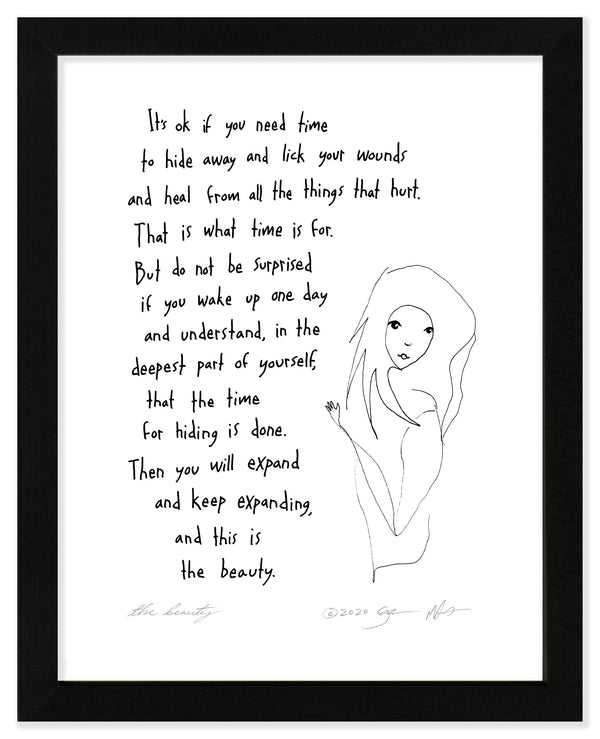 It's ok if you need time
to hide away and lick your wounds
and heal from all the things that hurt.
That is what time is for.
But do not be surprised
if you wake up one day
and understand, in the
deepest part of yourself,
that the time
for hiding is done.
Then you will expand
and keep expanding,
and this is
the beauty.
the beauty
©2020